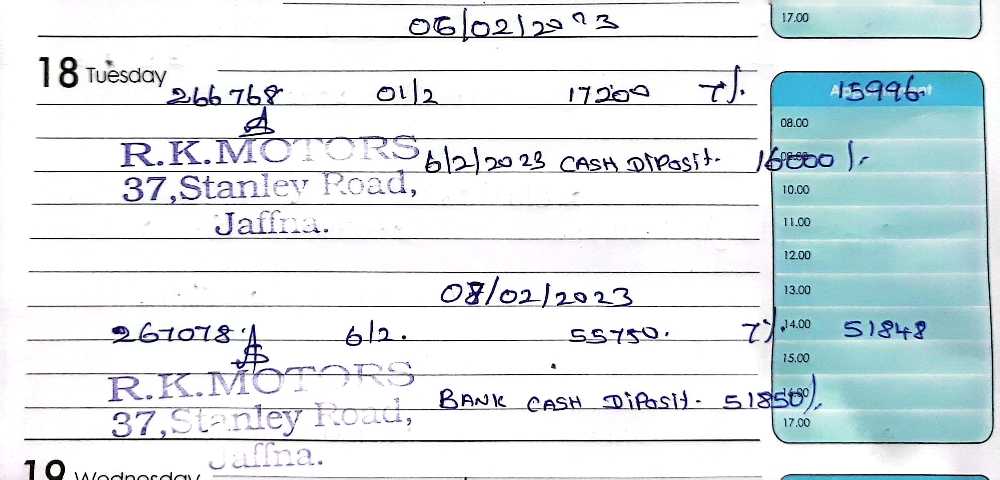 17.00
06/02/2023
18 Tuesday
266768 01/2 17200 7%. 15996.
08.00
R.K.MOTORS 6/2/2023 CASH DiPOSit. 16000/-
37,Stanley Road, 10.00
Jaffna. 11.00
12.00
13.00
08/02/2023
267078 6/2. 55750. 7%. 14.00 51848
15.00
R.K.MOTORS BANK CASH DiPOSit. 51850/-
37,Stanley Road, 17.00
Jaffna.
19 Wednesday